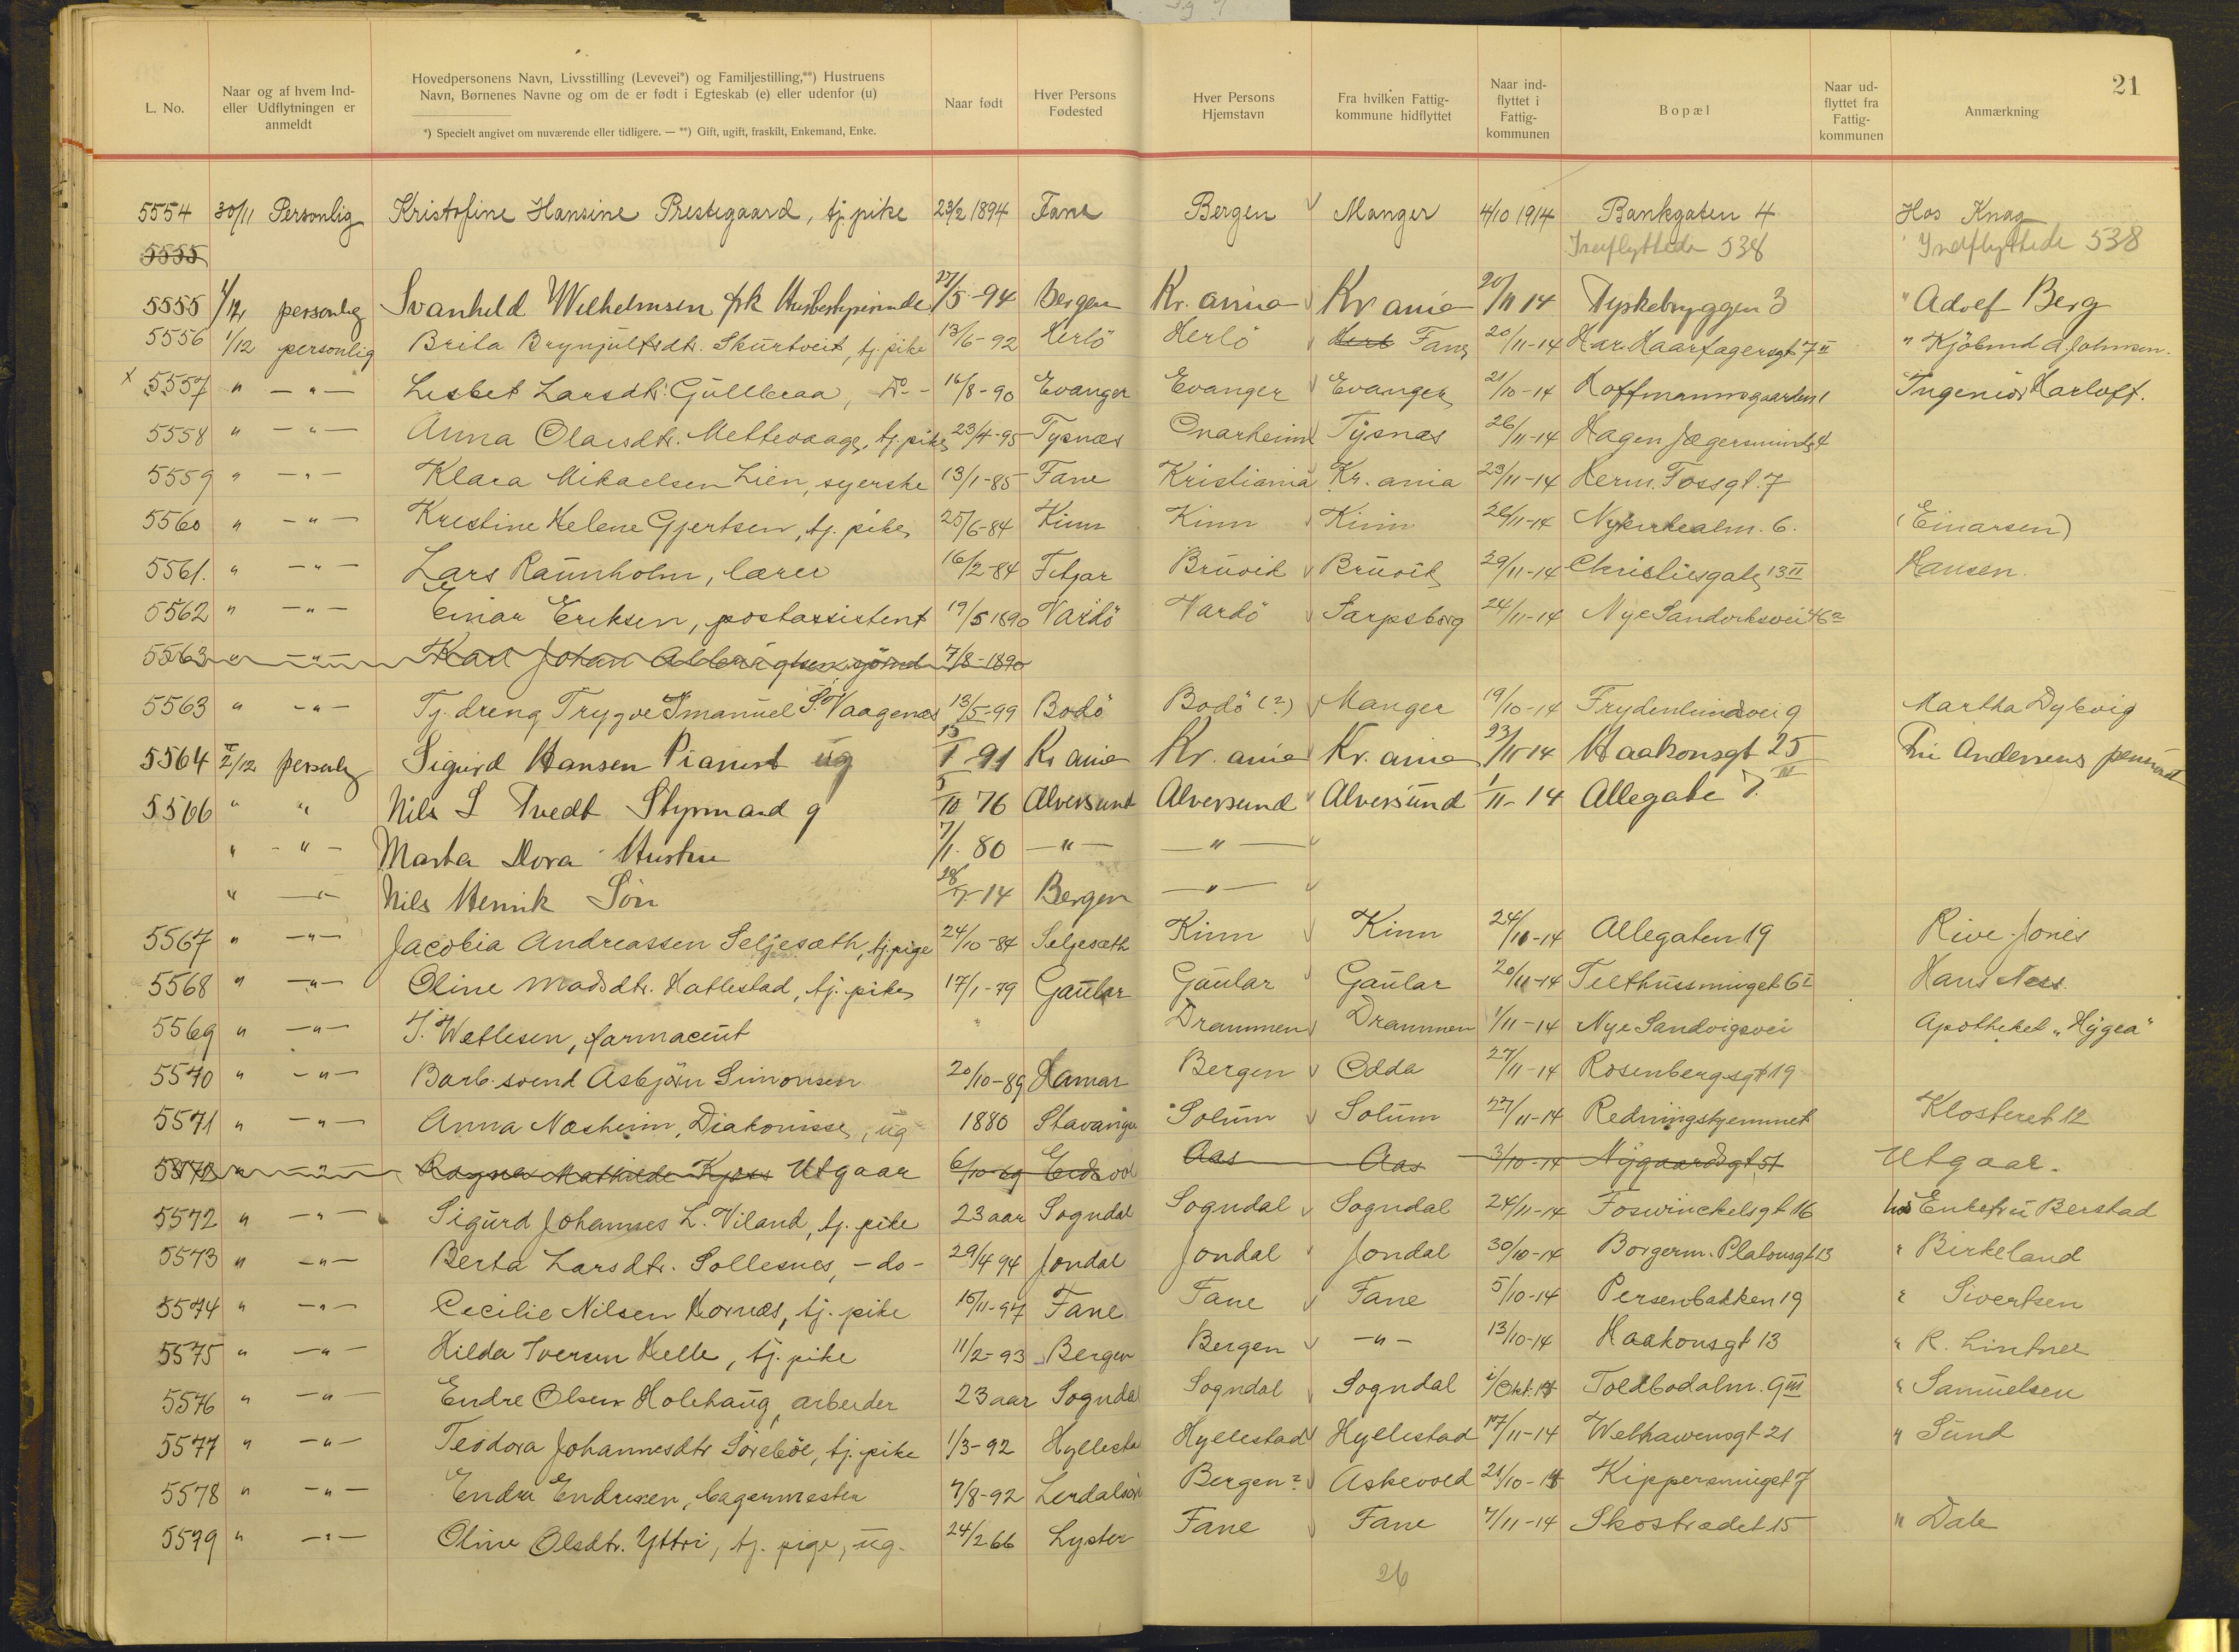 21
L. No.
Naar og af hvem Ind-
eller Udflytningen er
anmeldt
Hovedpersonens Navn, Livsstilling (Levevei*) og Familjestilling,**) Hustruens
Navn, Børnenes Navne og om de er født i Egteskab (e) eller udenfor (u)
*) Specielt angivet om nuværende eller tidligere. — **) Gift, ugift, fraskilt, Enkemand, Enke.
Naar født
Hver Persons
Fødested
Hver Persons
Hjemstavn
Fra hvilken Fattig-
kommune hidflyttet
Naar ind-
flyttet i
Fattig-
kommunen
Bopæl
Naar ud-
flyttet fra
Fattig-
kommunen
Anmærkning
5554 30/11 Personlig Kristofine Hansine Prestegaard, tj. pike 23/2 1894 Fane Bergen Manger 4/10 1914 Bankgaten 4 Hos Knag
5555 Indflyttede 538 Indflyttede 538
5555 1/12 personlig Svanhild Wilhelmsen frk 27/5-94 Bergen Kr. ania Kr ania 20/11 14 Tyskebryggen 3 " Adolf Berg
5556 1/12 personlig Brita Brynjulfsdtr. Skurtveit, tj. pike 13/6-92 Herlö Herlö Fane 20/11-14 Har. Haarfagersgt 7 II " Kjöbmd A. Johnsen.
x 5557 " - " - Lisbet Larsdtr. Gullbraa, Do - 16/8-90 Evanger Evanger Evanger 21/10-14 Hoffmannsgaarden 1 Ingeniör Harloff.
5558 " - " - Anna Olaisdtr. Mettevaage, tj. pike 23/4-95 Tysnæs Onarheim Tysnæs 26/11-14 Hagen Jægersminde 4
5559 " - " - Klara Mikaelsen Lien, syerske 13/1-85 Fane Kristiania Kr. ania 23/11-14 Herm. Fossgt. 7
5560 " - " - Kristine Helene Gjertsen, tj. pike 25/6-84 Kinn Kinn Kinn 26/11-14 Nykirkealm. 6. (Einarsen)
5561. " - " - Lars Raunholm, lærer 16/2-84 Fitjar Bruvik Bruvik 29/11-14 Christiesgate 13 II Hansen.
5562 " - " - Einar Eriksen, postassistent 19/5 1890 Vardö Vardö Sarpsborg 24/11-14 Nye Sandviksvei 46
5563 " - " - Karl Johan 7/8-1890
5563 " - " - Tj. dreng Trygve Imanuel S. Vaagenæs 13/5-99 Bodö Bodö (?) Manger 19/10-14 Frydenlundsvei 9 Martha Dybvig
5564 2/12 personlig Sigurd Hansen Pianist ug 15/I 91 Kr ania Kr. ania Kr. ania 23/11 14 Haakonsgt 25 III Andersens
5566 " " Nils S Tvedt Styrmand g 5/10 76 Alversund Alversund Alversund 1/11-14 Allegate 7.
" - " - Marta Dora Hustru 7/1-80 - " - - " -
" - " - Nils Henrik Sön 28/ 14 Bergen - " -
5567 " - " - Jacobia Andreassen Seljesæth, tj. pige 24/10-84 Seljesæth Kinn Kinn 24/10-14 Allegaten 19 Rive-Jones
5568 " - " - Oline Madsdtr. Hatlestad, tj. pike 17/1-79 Gaular Gaular Gaular 20/11-14 Telthussmuget 6 Hans Ness.
5569 " - " - J. Wetlesen, farmaceut Drammen Drammen 1/11-14 Nye Sandvigsvei Apotheket „Hygea"
5570 " - " - Barb. svend Asbjörn Simonsen 20/10-89 Hamar Bergen Odda 27/11-14 Rosenbergsgt 19
5571 " - " - Anna Næsheim, Diakonisse, ug 1880 Stavanger Solum Solum 27/11-14 Redningshjemmet Klosteret 12
5572 " - " - Ragna Mathilde Kjoss Utgaar 6/10-69 Eidsvol Aas Aas 3/10-14 Nygaardsgt 51 Utgaar.
5572 " - " - Sigurd Johannes L. Viland, tj. pike 23 aar Sogndal Sogndal Sogndal 24/11-14 Foswinckelsgt 16 hos Enkefru Berstad
5573 " - " - Berta Larsdtr. Sollesnes, - do - 29/4 94 Jondal Jondal Jondal 30/10-14 Borgerm. Platousgt 13 " Birkeland
5574 " - " - Cecilie Nilsen Hornæs, tj. pike 15/11-97 Fane Fane Fane 5/10-14 Persenbakken 19 " Sivertsen
5575 " - " - Hilda Iversen Helle, tj. pike 11/2-93 Bergen Bergen - " - 13/10-14 Haakonsgt 13 " R. Lintner
5576 " - " - Endre Olsen Holehaug, arbeider 23 aar Sogndal Sogndal Sogndal 1/Okt. 14 Toldbodalm. 9 III " Samuelsen
5577 " - " - Teodora Johannesdtr Söreböe, tj. pike 1/3-92 Hyllestad Hyllestad Hyllestad 17/11-14 Welhavensgt 21 " Sund
5578 " - " - Endre Endresen, bagermester 7/8-92 Lerdalsör Bergen? Askevold 21/10-14 Kippersmuget 7
5579 " - " - Oline Olsdtr. Yttri, tj. pige, ug. 24/2 66 Lyster Fane Fane 7/11-14 Skostrædet 15 " Dale
26